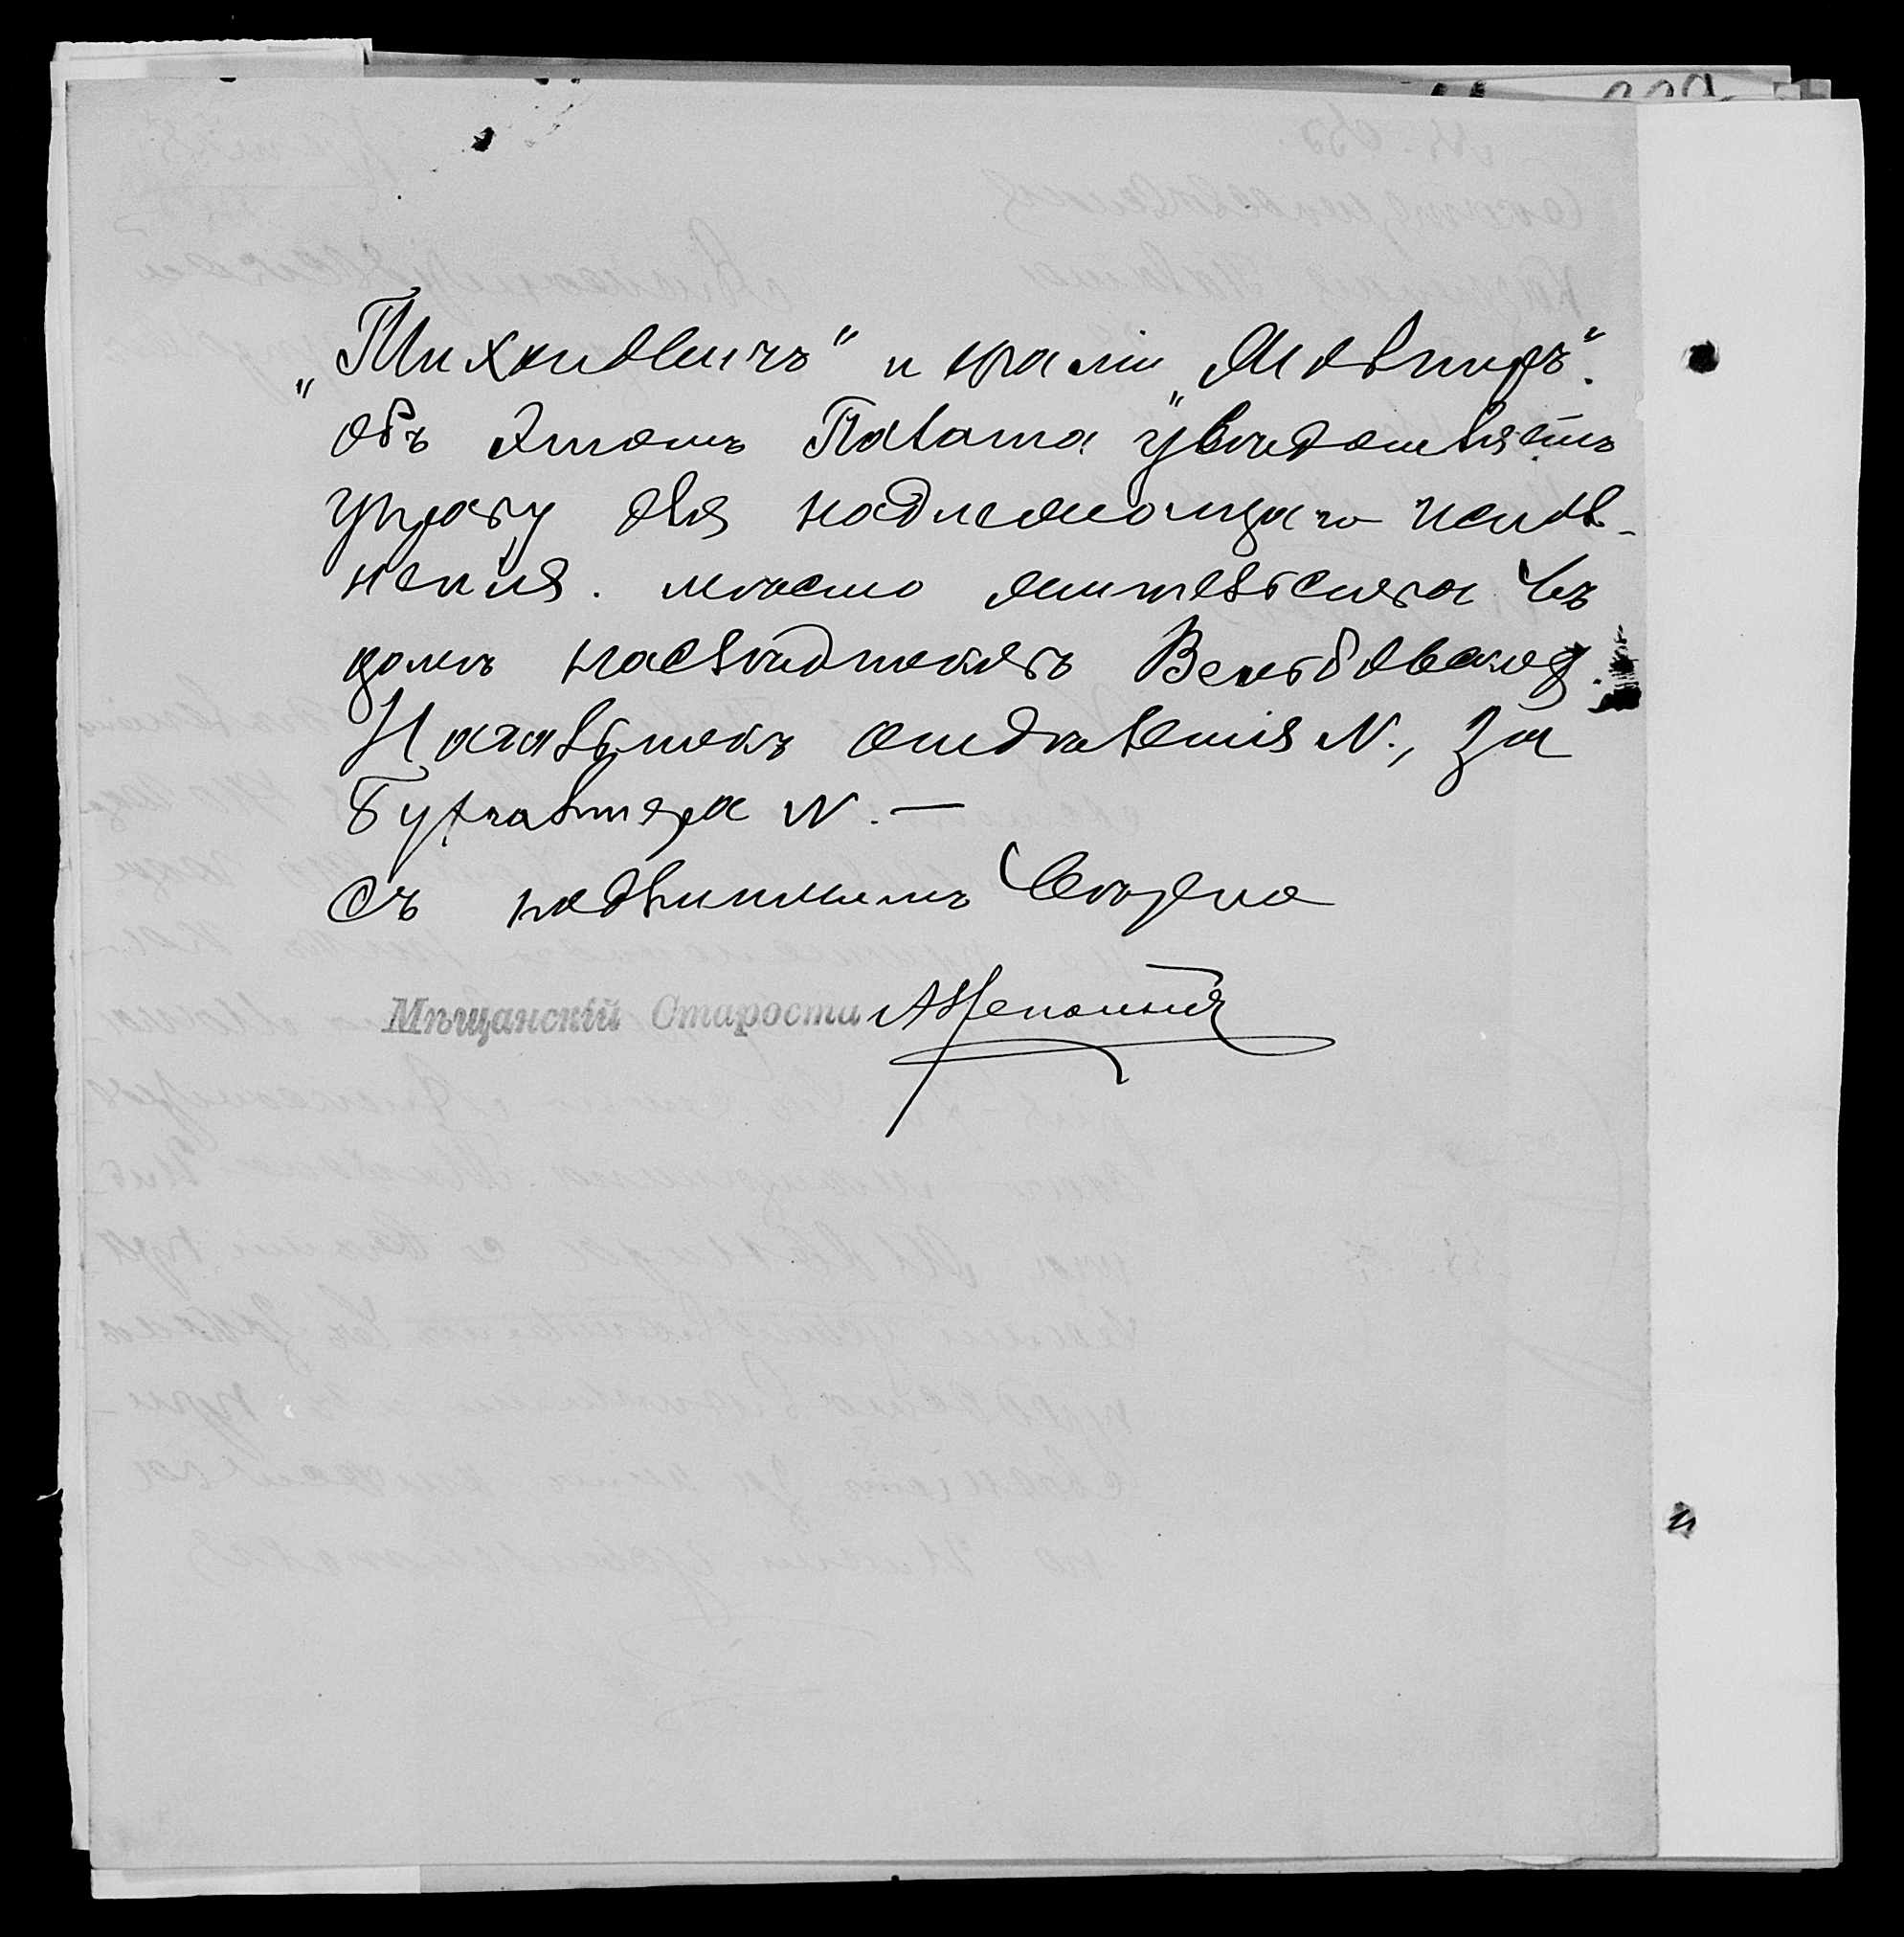 „Пихновичъ“ и фамилiи
Объ этомъ Палата увѣдомляетъ
управу для надлежащаго испол-
ненія. Мѣсто жительства въ
домѣ наслѣдниковъ
Начальникъ отдѣленія N., За
Бухгалтера N. —
Съ подлиннымъ вѣрно
Мѣщанскій Староста